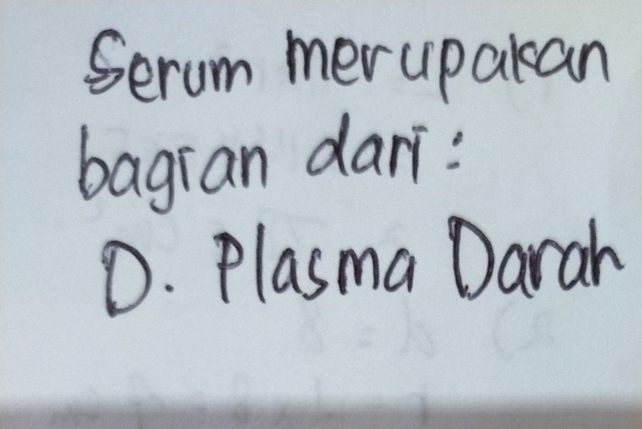 Serum merupakan
bagian dari :
D. Plasma Darah